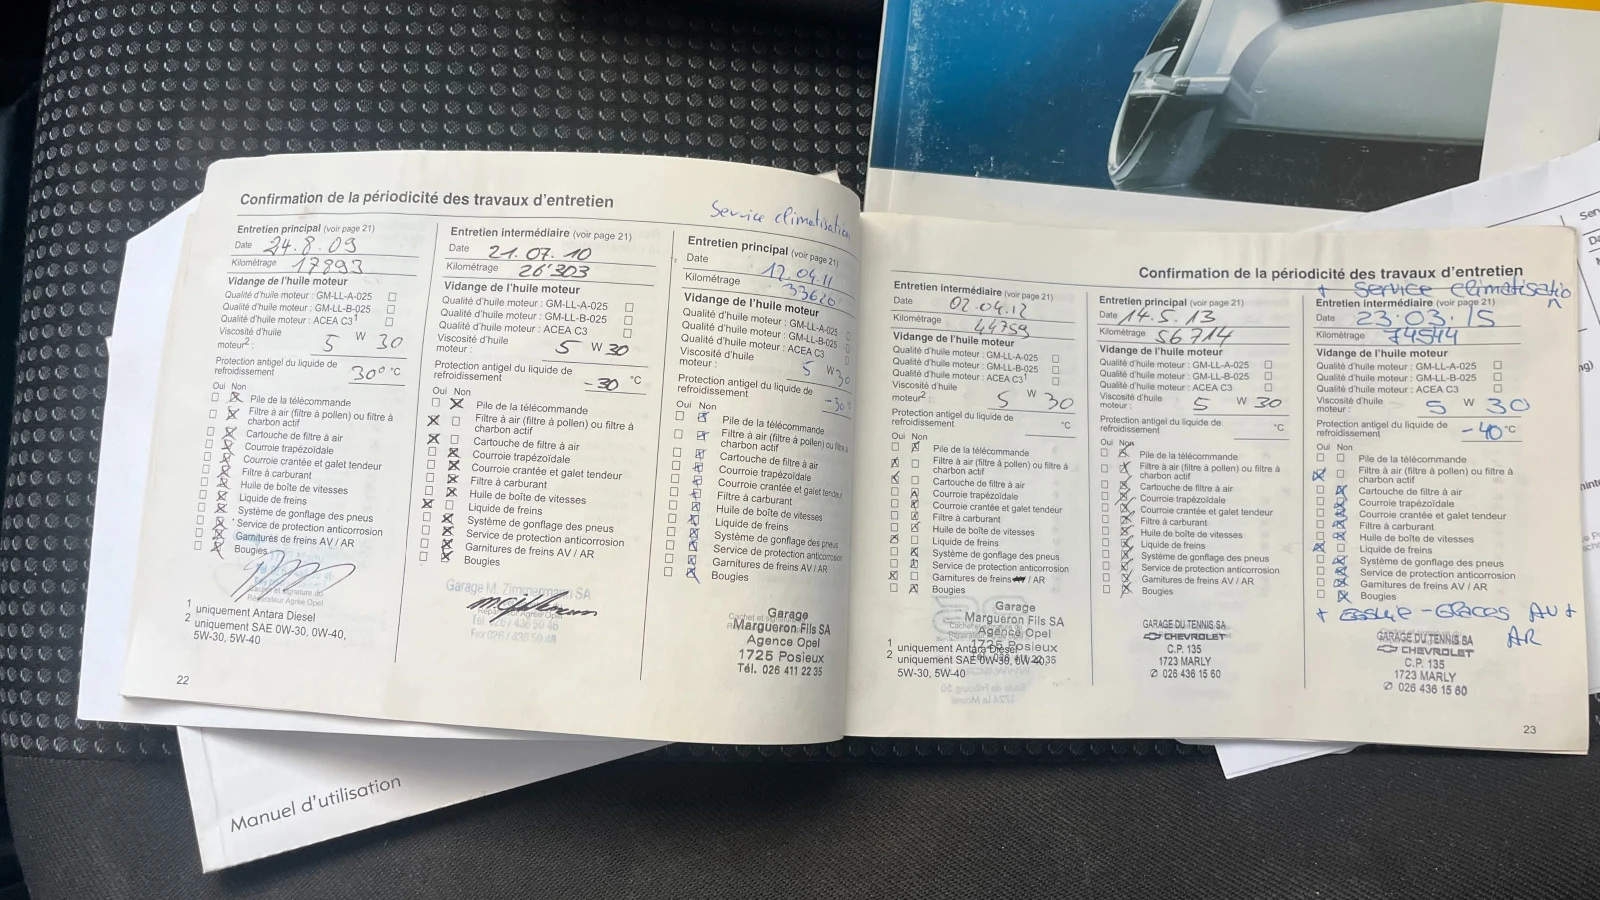 Confirmation de la périodicité des travaux d'entretien
Service climatisation
Entretien principal (voir page 21)
Date 24.8.09
Kilométrage 17893
Vidange de l'huile moteur
Qualité d'huile moteur : GM-LL-A-025
Qualité d'huile moteur : GM-LL-B-025
Qualité d'huile moteur : ACEA C3¹
Viscosité d'huile
moteur² : 5 W 30
Protection antigel du liquide de
refroidissement 30° °C
Oui Non
Pile de la télécommande
Filtre à air (filtre à pollen) ou filtre à
charbon actif
Cartouche de filtre à air
Courroie trapézoïdale
Courroie crantée et galet tendeur
Filtre à carburant
Huile de boîte de vitesses
Liquide de freins
Système de gonflage des pneus
Service de protection anticorrosion
Garnitures de freins AV / AR
Bougies
Cachet et signature du
Réparateur Agréé Opel
1 uniquement Antara Diesel
2 uniquement SAE 0W-30, 0W-40,
5W-30, 5W-40
22
Entretien intermédiaire (voir page 21)
Date 21.07.10
Kilométrage 26'303
Vidange de l'huile moteur
Qualité d'huile moteur : GM-LL-A-025
Qualité d'huile moteur : GM-LL-B-025
Qualité d'huile moteur : ACEA C3
Viscosité d'huile
moteur : 5 W 30
Protection antigel du liquide de
refroidissement -30 °C
Oui Non
Pile de la télécommande
Filtre à air (filtre à pollen) ou filtre à
charbon actif
Cartouche de filtre à air
Courroie trapézoïdale
Courroie crantée et galet tendeur
Filtre à carburant
Huile de boîte de vitesses
Liquide de freins
Système de gonflage des pneus
Service de protection anticorrosion
Garnitures de freins AV / AR
Bougies
Garage M. Zimmermann SA
Réparateur Agréé Opel
Tél. 026 / 436 50 46
Fax 026 / 436 50 48
Entretien principal (voir page 21)
Date 12.04.11
Kilométrage 33620
Vidange de l'huile moteur
Qualité d'huile moteur : GM-LL-A-025
Qualité d'huile moteur : GM-LL-B-025
Qualité d'huile moteur : ACEA C3
Viscosité d'huile
moteur : 5 W 30
Protection antigel du liquide de
refroidissement -30°
Oui Non
Pile de la télécommande
Filtre à air (filtre à pollen) ou filtre à
charbon actif
Cartouche de filtre à air
Courroie trapézoïdale
Courroie crantée et galet tendeur
Filtre à carburant
Huile de boîte de vitesses
Liquide de freins
Système de gonflage des pneus
Service de protection anticorrosion
Garnitures de freins AV / AR
Bougies
Garage
Margueron Fils SA
Agence Opel
1725 Posieux
Tél. 026 411 22 35
Confirmation de la périodicité des travaux d'entretien
+ Service climatisation
Entretien intermédiaire (voir page 21)
Date 02.04.12
Kilométrage 44759
Vidange de l'huile moteur
Qualité d'huile moteur : GM-LL-A-025
Qualité d'huile moteur : GM-LL-B-025
Qualité d'huile moteur : ACEA C3¹
Viscosité d'huile
moteur² 5 W 30
Protection antigel du liquide de
refroidissement °C
Oui Non
Pile de la télécommande
Filtre à air (filtre à pollen) ou filtre à
charbon actif
Cartouche de filtre à air
Courroie trapézoïdale
Courroie crantée et galet tendeur
Filtre à carburant
Huile de boîte de vitesses
Liquide de freins
Système de gonflage des pneus
Service de protection anticorrosion
Garnitures de freins / AR
Bougies
Garage
Margueron Fils SA
Agence Opel
1725 Posieux
1 uniquement Antara Diesel
2 uniquement SAE 0W-30, 0W-40,
5W-30, 5W-40
Entretien principal (voir page 21)
Date 14.5.13
Kilométrage 56714
Vidange de l'huile moteur
Qualité d'huile moteur : GM-LL-A-025
Qualité d'huile moteur : GM-LL-B-025
Qualité d'huile moteur : ACEA C3
Viscosité d'huile
moteur : 5 W 30
Protection antigel du liquide de
refroidissement °C
Oui Non
Pile de la télécommande
Filtre à air (filtre à pollen) ou filtre à
charbon actif
Cartouche de filtre à air
Courroie trapézoïdale
Courroie crantée et galet tendeur
Filtre à carburant
Huile de boîte de vitesses
Liquide de freins
Système de gonflage des pneus
Service de protection anticorrosion
Garnitures de freins AV / AR
Bougies
GARAGE DU TENNIS SA
CHEVROLET
C.P. 135
1723 MARLY
✆ 026 436 15 60
Entretien intermédiaire (voir page 21)
Date 23.03.15
Kilométrage 74544
Vidange de l'huile moteur
Qualité d'huile moteur : GM-LL-A-025
Qualité d'huile moteur : GM-LL-B-025
Qualité d'huile moteur : ACEA C3
Viscosité d'huile
moteur : 5 W 30
Protection antigel du liquide de
refroidissement -40 °C
Oui Non
Pile de la télécommande
Filtre à air (filtre à pollen) ou filtre à
charbon actif
Cartouche de filtre à air
Courroie trapézoïdale
Courroie crantée et galet tendeur
Filtre à carburant
Huile de boîte de vitesses
Liquide de freins
Système de gonflage des pneus
Service de protection anticorrosion
Garnitures de freins AV / AR
Bougies
+ essuie-glaces AV +
AR
GARAGE DU TENNIS SA
CHEVROLET
C.P. 135
1723 MARLY
✆ 026 436 15 60
23
Manuel d'utilisation